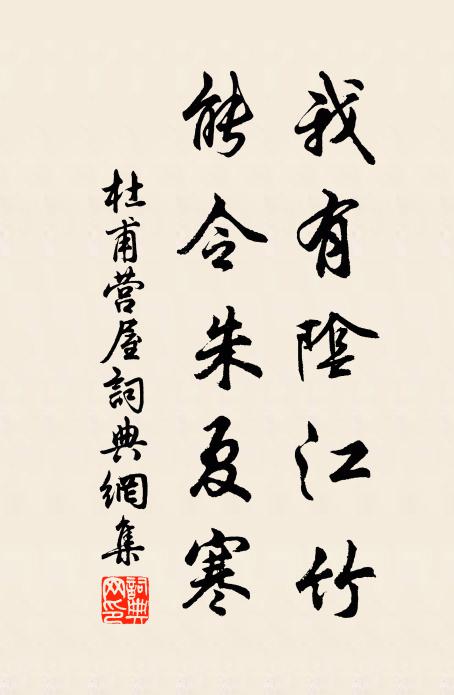 我有陰江竹
能令朱夏寒
杜甫营屋詞典網集
詞典网印